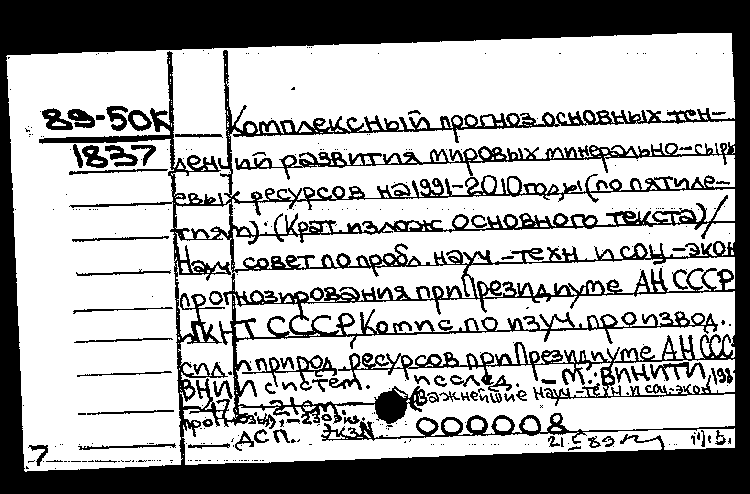 89-50К
1837
Комплексный прогноз основных тен-
денций развития мировых минерально-сырь
евых ресурсов на 1991-2010 годы (по пятиле-
тиям): (Крат. излож. основного текста) /
Науч. совет по пробл. науч.-техн. и соц.-экон
прогнозирования при Президиуме АН СССР
и ГКНТ СССР, Комис. по изуч. производ.
сил и природ. ресурсов при Президиуме АН СССР
ВНИИ систем. исслед. - М.: ВИНИТИ, 198
- 47 21 см. (Важнейшие науч.-техн. и соц.-экон
прогнозы),
ДСП. Экз N 000008
7